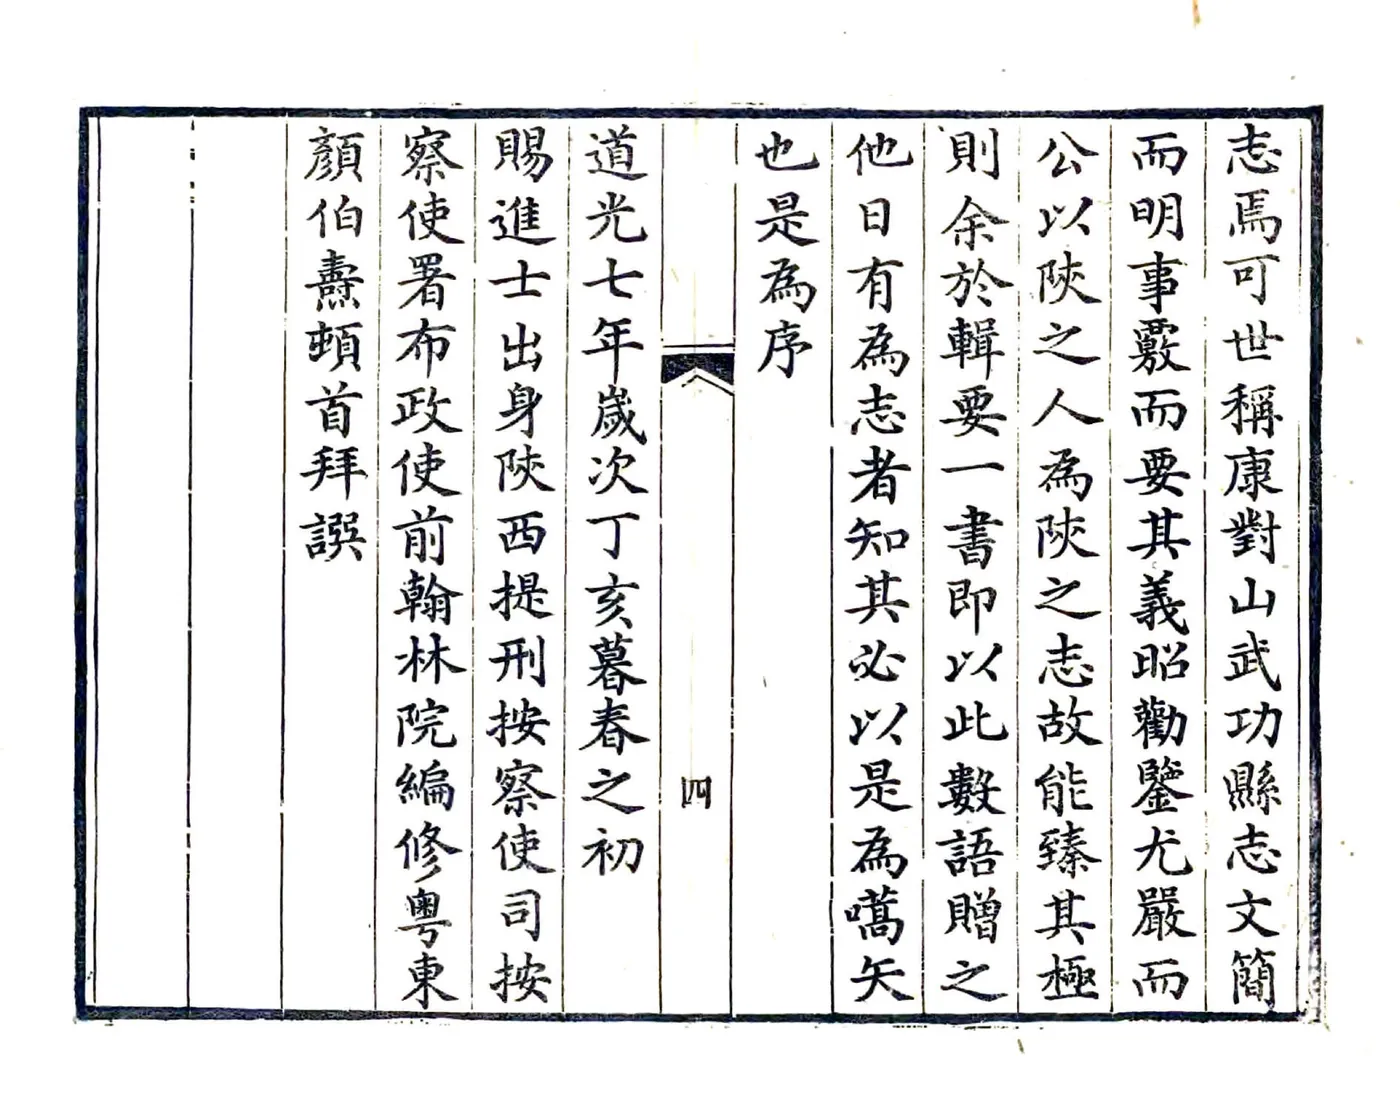 志焉可世稱康對山武功縣志文簡
而明事覈而要其義昭勸鑒尤嚴而
公以陝之人為陝之志故能臻其極
則余於輯要一書即以此數語贈之
他日有為志者知其必以是為嚆矢
也是為序
四
道光七年歲次丁亥暮春之初
賜進士出身陝西提刑按察使司按
察使署布政使前翰林院編修粵東
顏伯燾頓首拜譔